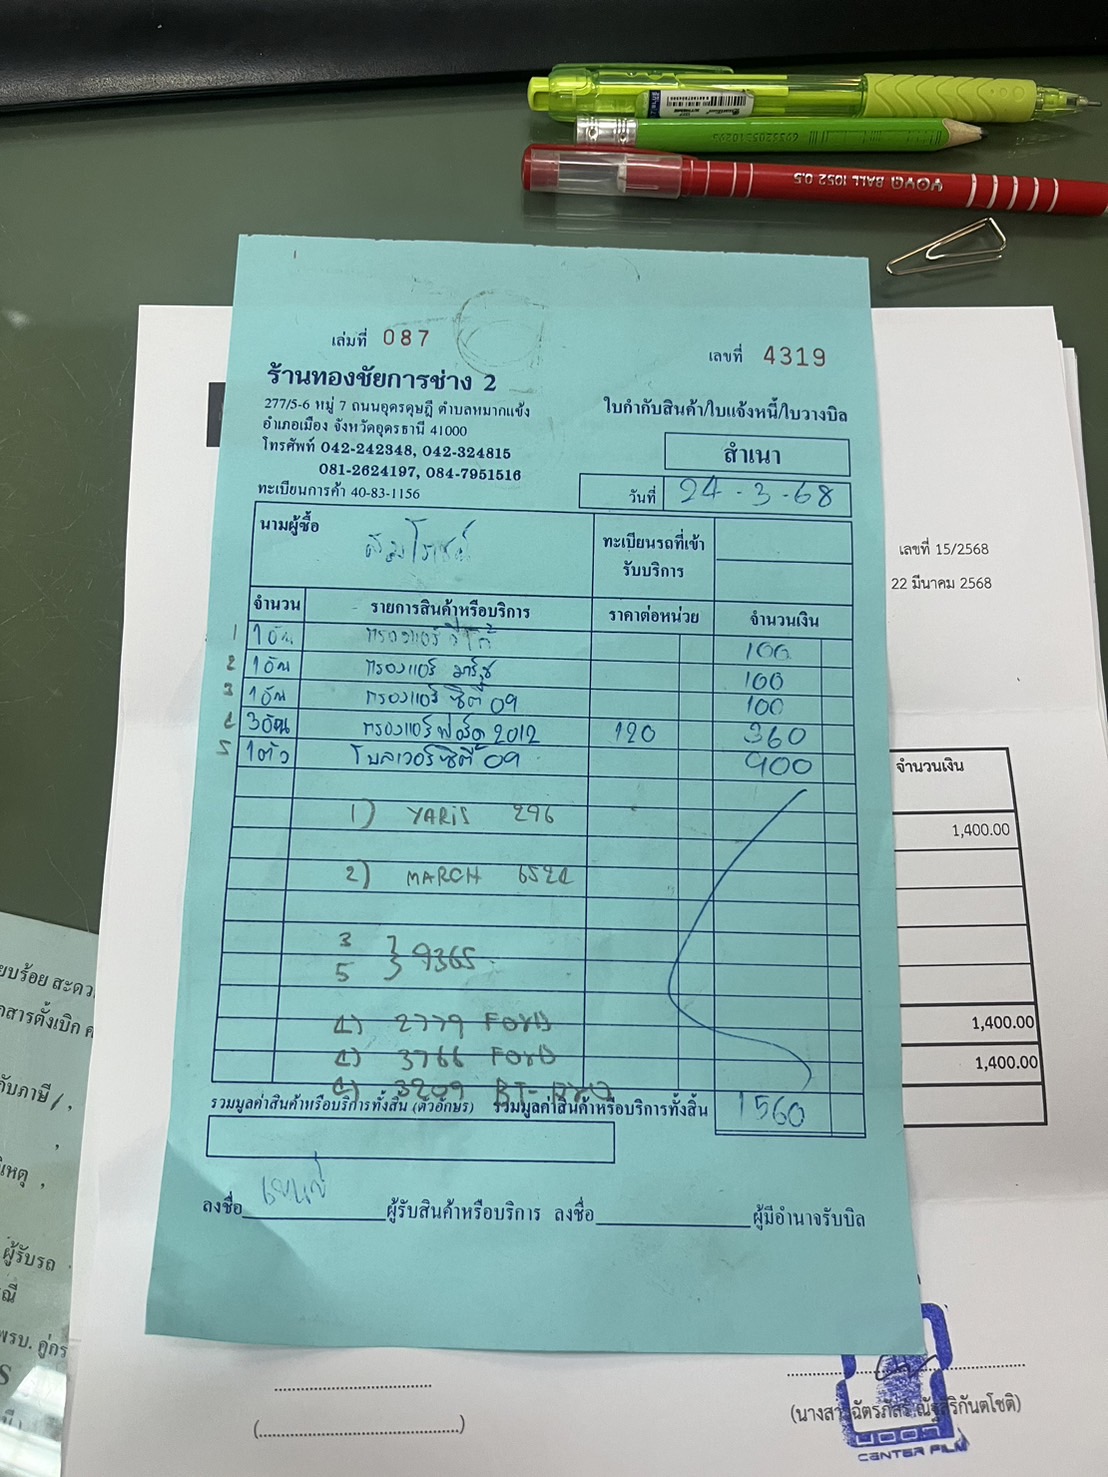 YOYA BALL 1052 0.5
เล่มที่ 087
เลขที่ 4319
ร้านทองชัยการช่าง 2
277/5-6 หมู่ 7 ถนนอุดรดุษฎี ตำบลหมากแข้ง
อำเภอเมือง จังหวัดอุดรธานี 41000
โทรศัพท์ 042-242348, 042-324815
081-2624197, 084-7951516
ทะเบียนการค้า 40-83-1156
ใบกำกับสินค้า/ใบแจ้งหนี้/ใบวางบิล
สำเนา
วันที่ 24-3-68
นามผู้ซื้อ
ทะเบียนรถที่เข้า
รับบริการ
จำนวน รายการสินค้าหรือบริการ ราคาต่อหน่วย จำนวนเงิน
1 1อัน กรองแอร์ 100
2 1อัน กรองแอร์ มาร์ช 100
3 1อัน กรองแอร์ ซิตี้ 09 100
4 3อัน กรองแอร์ฟอร์ด 2012 120 360
5 1ตัว โบลเวอร์ซิตี้ 09 900
1) YARIS 296
2) MARCH 6524
3
5 } 9365
4) 2779 FORD
4) 3766 FORD
4) 3209
รวมมูลค่าสินค้าหรือบริการทั้งสิ้น (ตัวอักษร) รวมมูลค่าสินค้าหรือบริการทั้งสิ้น 1560
ลงชื่อ ผู้รับสินค้าหรือบริการ ลงชื่อ ผู้มีอำนาจรับบิล
เลขที่ 15/2568
22 มีนาคม 2568
จำนวนเงิน
1,400.00
1,400.00
1,400.00
ผู้รับรถ
CENTER FILM